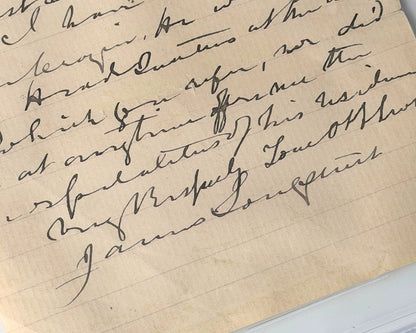 I have
He
Head Quarters at the
which you refer, nor did
at anytime offer me the
hospitalities of his residence
Very Respectfully Your Obt Servt
James Longstreet